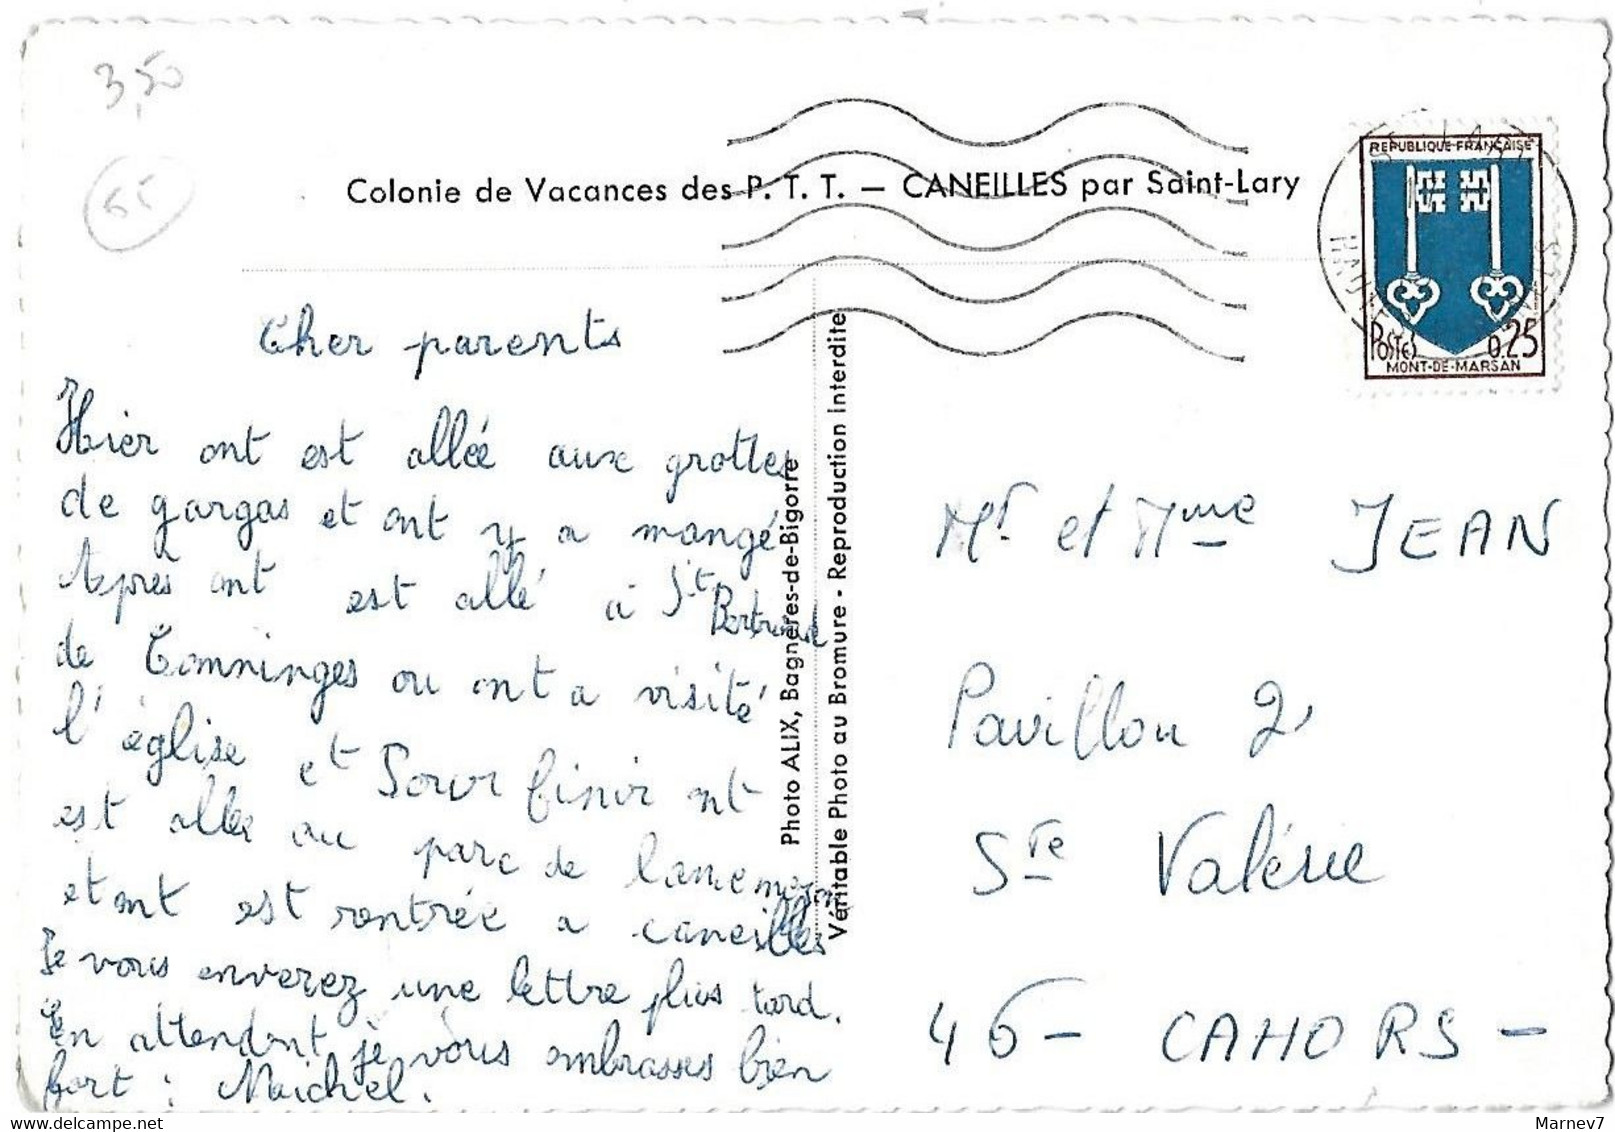 3,50
65
Colonie de Vacances des P. T. T. — CANEILLES par Saint-Lary
REPUBLIQUE FRANÇAISE
POSTES 0.25
MONT-DE-MARSAN
Cher parents
Hier ont est allée aux grottes
de gargas et ont y a mangé
Après ont est allé a St Bertrand
de Comninges ou ont a visité
l'église et Pour finir ont
est allée au parc de lanemezan
et ont est rentrée a caneilles
Je vous enverez une lettre plus tard.
En attendant je vous embrasses bien
fort : Maichel.
Photo ALIX, Bagnères-de-Bigorre
Véritable Photo au Bromure - Reproduction interdite
Mr et Mme JEAN
Pavillon 2
Ste Valérie
46 - CAHORS -
Marnev7